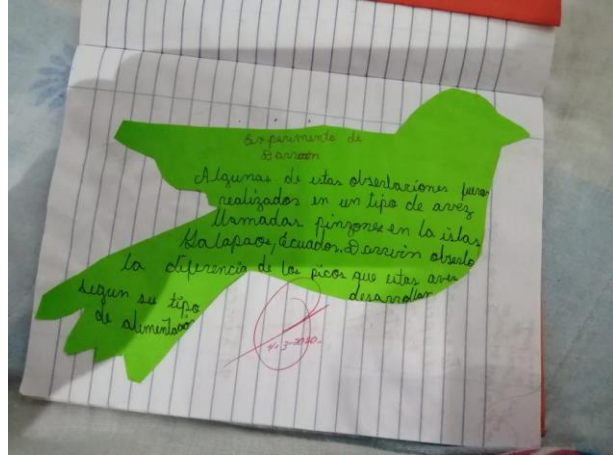 Experimento de
Darwin
Algunas de estas obserbaciones fueron
realizados en un tipo de avez
llamadas pinzones en la islas
Galapaos, Ecuados, Darwin obserbo
la diferencia de los picos que estas aves
desarrollan
segun su tipo
de alimentacion
4-3-2020